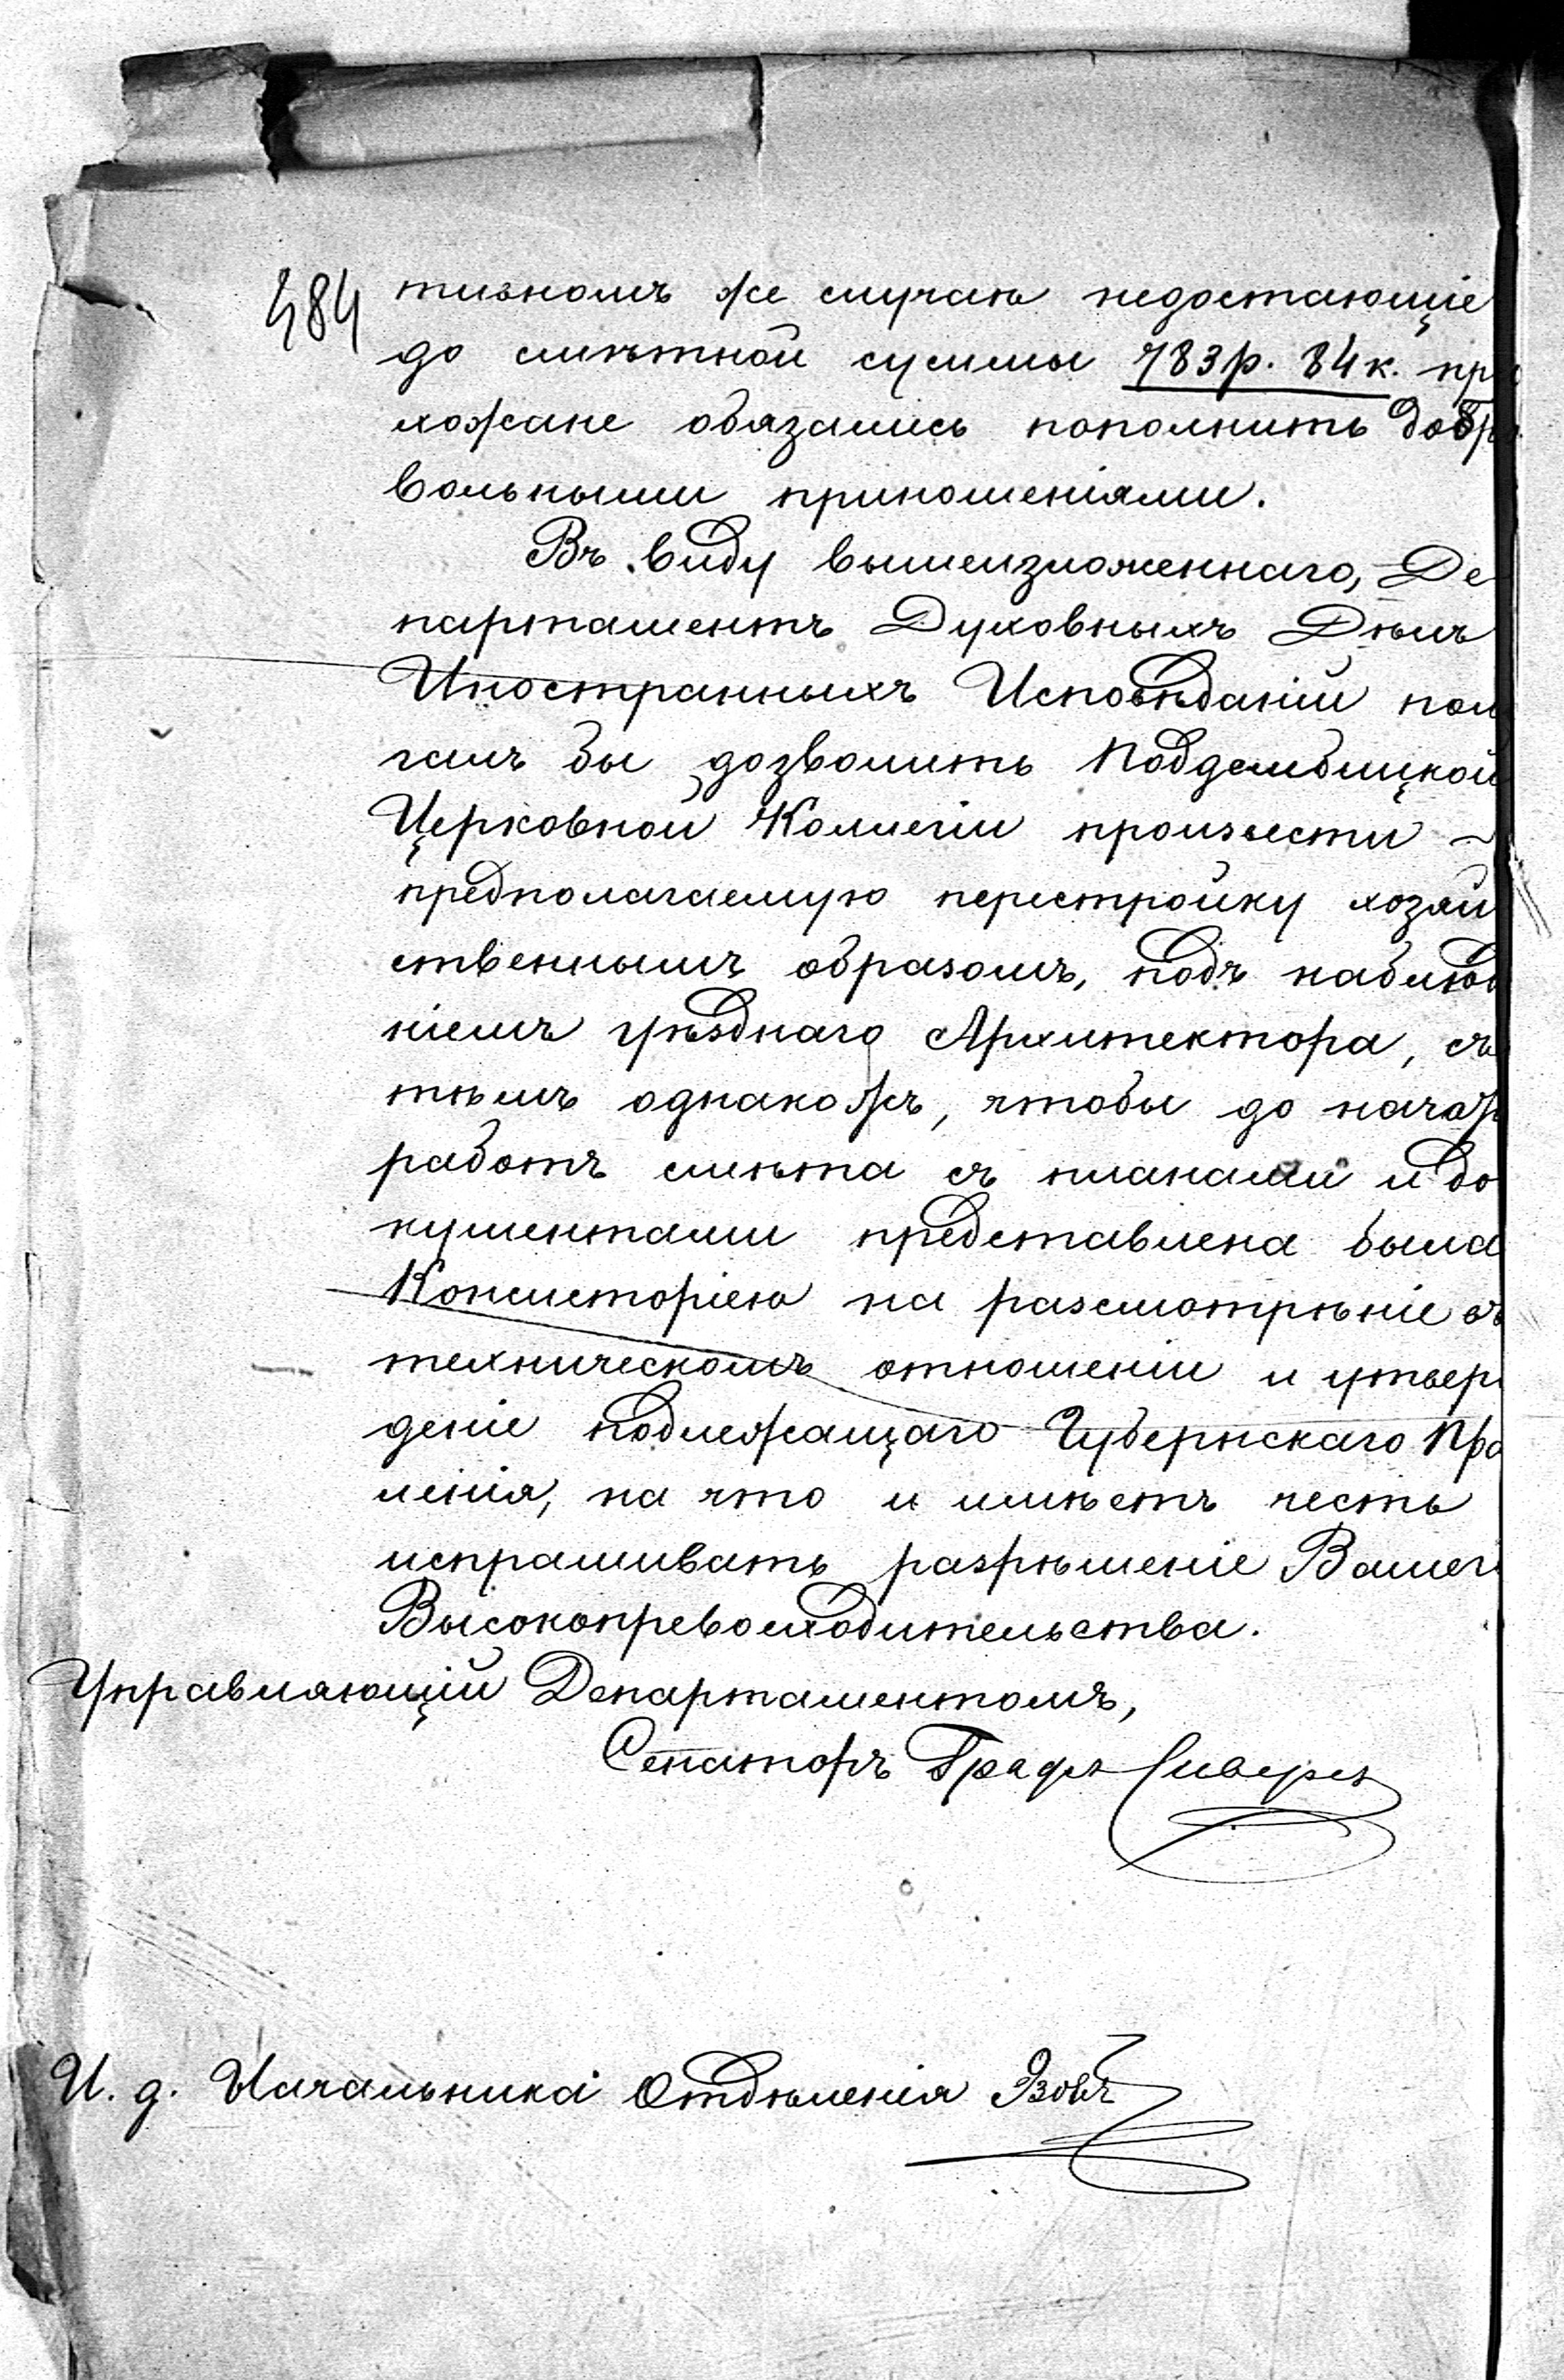 484
тивномъ же случаѣ недостающіе
до смѣтной суммы 783р. 84к. при
хожане обязались пополнить добро
вольными приношеніями.
Въ виду вышеизложеннаго, Де
партаментъ Духовныхъ Дѣлъ
Иностранныхъ Исповѣданій пола
галъ бы дозволить Поддембицкой
Церковной Коллегіи произвести
предполагаемую перестройку хозяй
ственнымъ образомъ, подъ наблюде
ніемъ уѣзднаго Архитектора, съ
тѣмъ однакожъ, чтобы до начала
работъ смѣта съ планами и до
кументами представлена была
Консисторіею на разсмотрѣніе въ
техническомъ отношеніи и утверж
деніе подлежащаго Губернскаго Прав
ленія, на что и имѣетъ честь
испрашивать разрѣшеніе Вашего
Высокопревосходительства.
Управляющій Департаментомъ,
Сенаторъ Графъ Сиверсъ
И. д. Начальника Отдѣленія